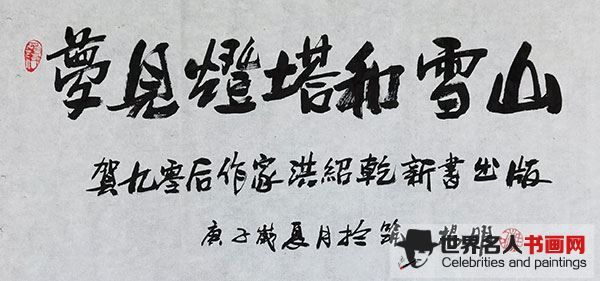 夢見燈塔和雪山
賀九零后作家洪紹乾新書出版
庚子歲夏月於筑
世界名人书画网
Celebrities and paintings